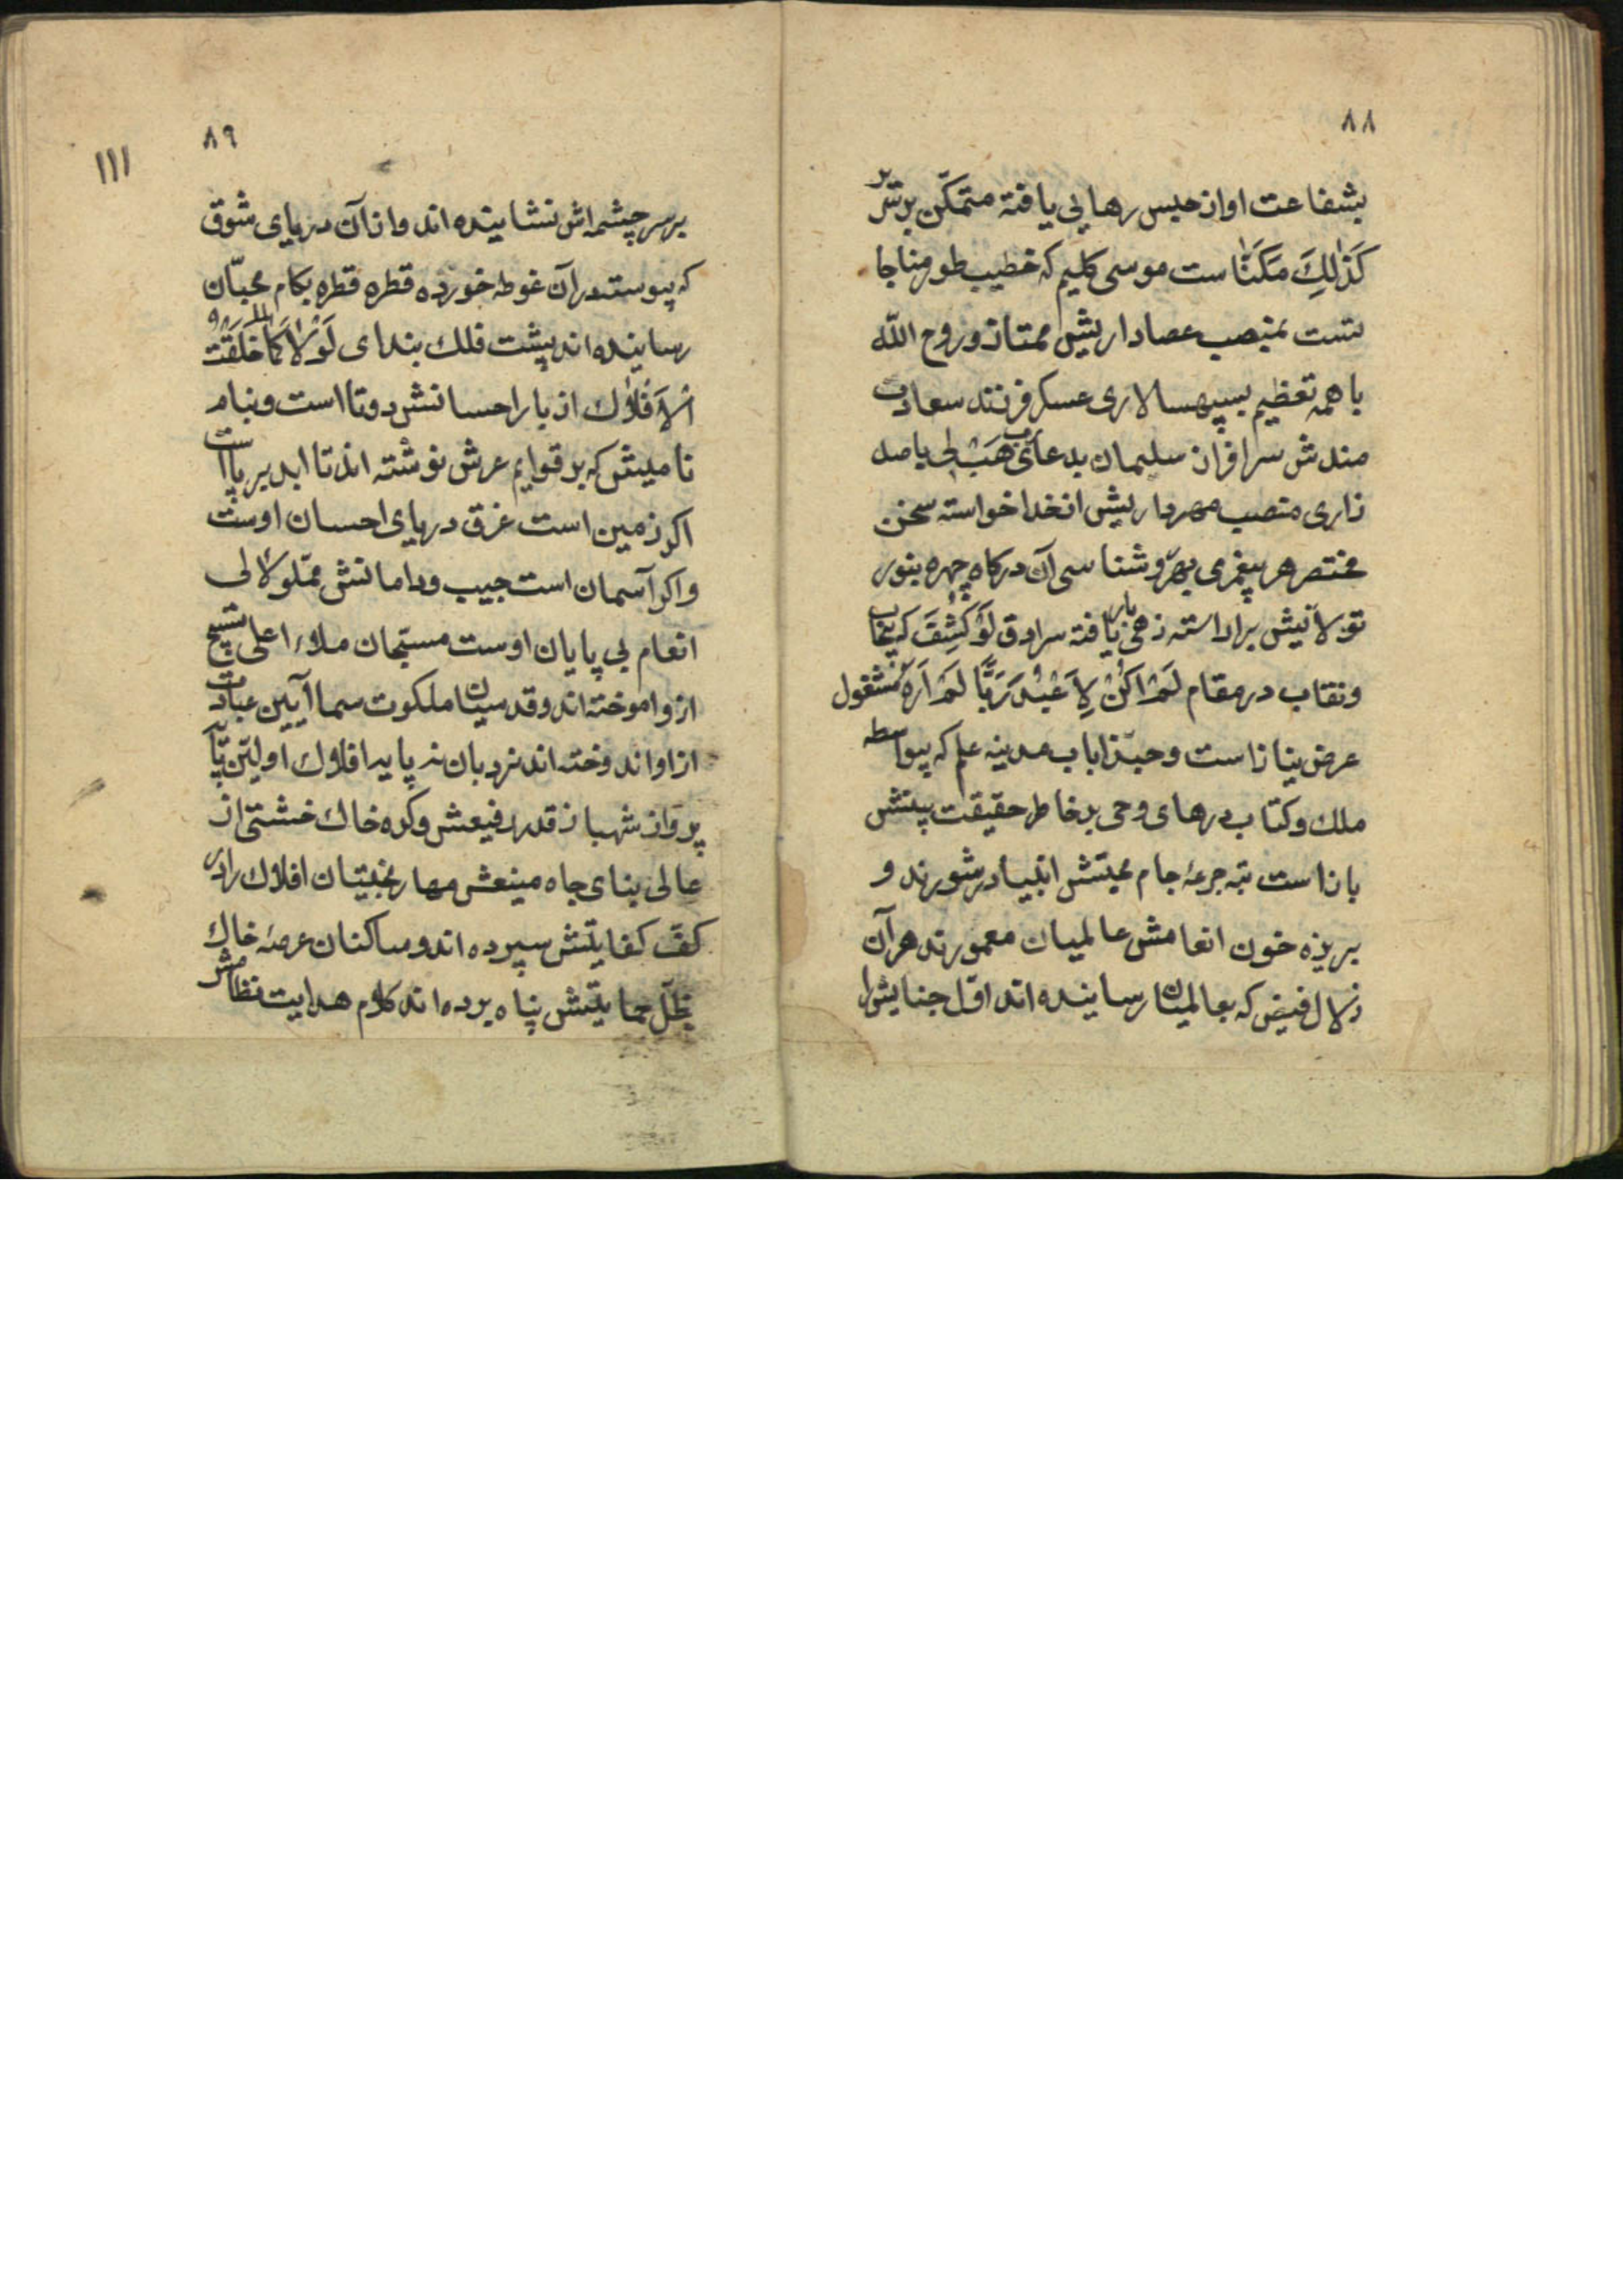 ٨٨
بشفاعت او از حبس رهایی یافته متمکّن بر سریر
كَذٰلِكَ مَكَنّٰا ست موسی کلیم که خطیب طور مناجا
تست بمنصب عصاداریش ممتاز و روح اللّه
با همه تعظیم بسپهسالاری عسکر فرزند سعادت
مندش سرافراز سلیمان بدعای رب هَبْ لی با صد
زاری منصب مهرداریش از خدا خواسته سخن
مختصر هر پیغمبری بهر روشناسی آن درکاه چهره بنور
تولانیش برا راسته زهی یار یافته سرادق لَوْ كُشِفَ که بیحجاب
و نقاب در مقام لَمْ اَكُنْ لِاَعْبُدَ رَبًّا لَمْ اَرَهُ مشغول
عرض نیاز است و حبّذا باب مدینه علم که بیواسطه
ملك و کتاب درهای وحی بر خاطر حقیقت بینش
باز است بته جرعهٔ جام محبتش انبیا در شورند و
بریزه خون انعامش عالمیان معمورند هر آن
زلال فیض که بعالمیان رسانیده اند اوّل جنابش را
٨٩
١١١
بر سر چشمه اش نشانیده اند و از آن دریای شوق
که پیوسته در آن غوطه خورده قطره قطره بکام محبّان
رسانیده اند پشت فلك بندای لَوْلاكَ لما خَلَقْتُ
الْاَفْلاك از بار احسانش دوتا است و بنام
نامیش که بر قوایم عرش نوشته اند تا ابد بر پا است
اکر زمین است غرق دریای احسان اوست
و اکر آسمان است جیب و دامانش مملو لآلی
انعام بی پایان اوست مسبّحان ملاء اعلی تسبیح
ازو اموخته اند و قدسیان ملکوت سما آیین عبادت
از او اندوخته اند نردبان نه پایه افلاك اولین پایهٔ
پرواز شهباز قدر رفیعش و کره خاك خشتی از
عالی بنای جاه منیعش مهار بختیان افلاك را در
کف کفایتش سپرده اند و ساکنان عرصهٔ خاك
بظلّ حمایتش پناه برده اند کلام هدایت نظامش